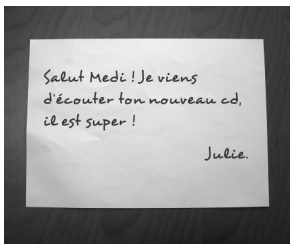 Salut Medi ! Je viens
d'écouter ton nouveau cd,
il est super !
Julie.